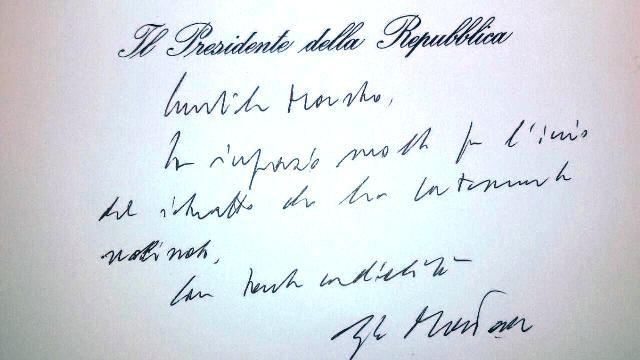 Il Presidente della Repubblica
Gentile Maestro,
La ringrazio molto per l'invio
del ritratto che ha cortesemente
realizzato.
Con tanta cordialità